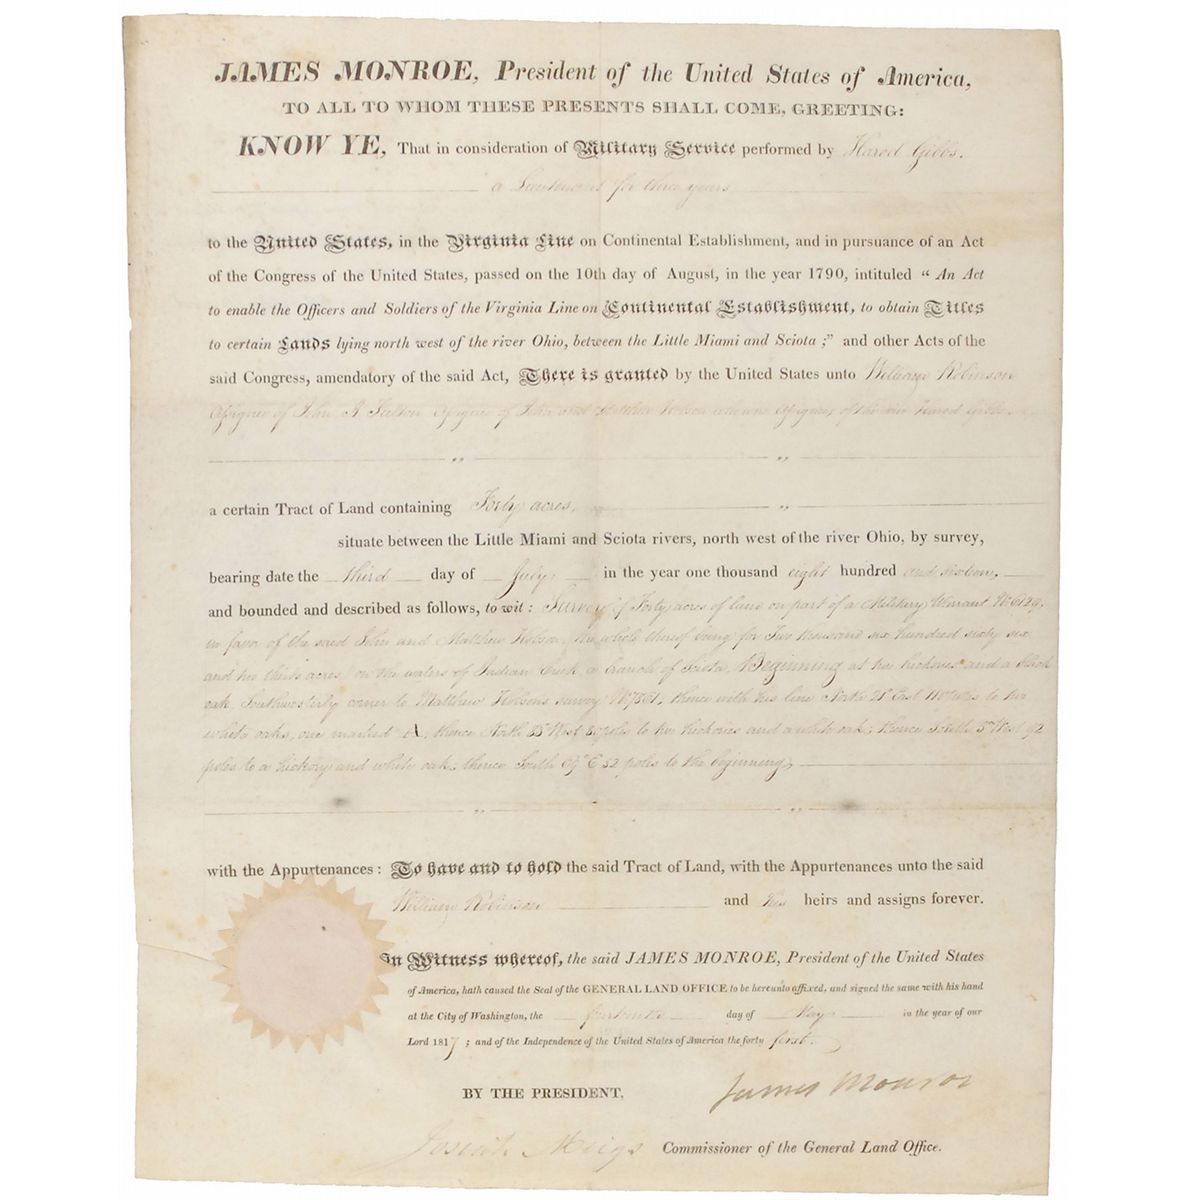 JAMES MONROE, President of the United States of America,
TO ALL TO WHOM THESE PRESENTS SHALL COME, GREETING:
KNOW YE, That in consideration of Military Service performed by Harod Gibbs,
a Lieutenant for three years
to the United States, in the Virginia Line on Continental Establishment, and in pursuance of an Act
of the Congress of the United States, passed on the 10th day of August, in the year 1790, intituled “An Act
to enable the Officers and Soldiers of the Virginia Line on Continental Establishment, to obtain Titles
to certain Lands lying north west of the river Ohio, between the Little Miami and Sciota;” and other Acts of the
said Congress, amendatory of the said Act, There is granted by the United States unto William Robinson
assignee of John A. Fulton assignee of John and Matthew Hobson who were assignees of the said Harod Gibbs.
a certain Tract of Land containing Forty acres,
situate between the Little Miami and Sciota rivers, north west of the river Ohio, by survey,
bearing date the third day of July in the year one thousand eight hundred and sixteen,
and bounded and described as follows, to wit: Survey of Forty acres of land on part of a Military Warrant No 6129,
in favor of the said John and Matthew Hobson, the whole thereof being for Two thousand six hundred sixty six
and two thirds acres, on the waters of Indian Creek a branch of Sciota, Beginning at two hickories and a black
oak, Southwesterly corner to Matthew Hobson's survey No 7861, thence with his line North East poles to two
white oaks, one marked A, thence North 88 West 80 poles to two hickories and a white oak; thence South 5 West 92
poles to a hickory and white oak; thence South E 52 poles to the beginning
with the Appurtenances: To have and to hold the said Tract of Land, with the Appurtenances unto the said
William Robinson and his heirs and assigns forever.
In Witness whereof, the said JAMES MONROE, President of the United States
of America, hath caused the Seal of the GENERAL LAND OFFICE to be hereunto affixed, and signed the same with his hand
at the City of Washington, the day of May in the year of our
Lord 1817; and of the Independence of the United States of America the forty first.
BY THE PRESIDENT,
James Monroe
Josiah Meigs Commissioner of the General Land Office.